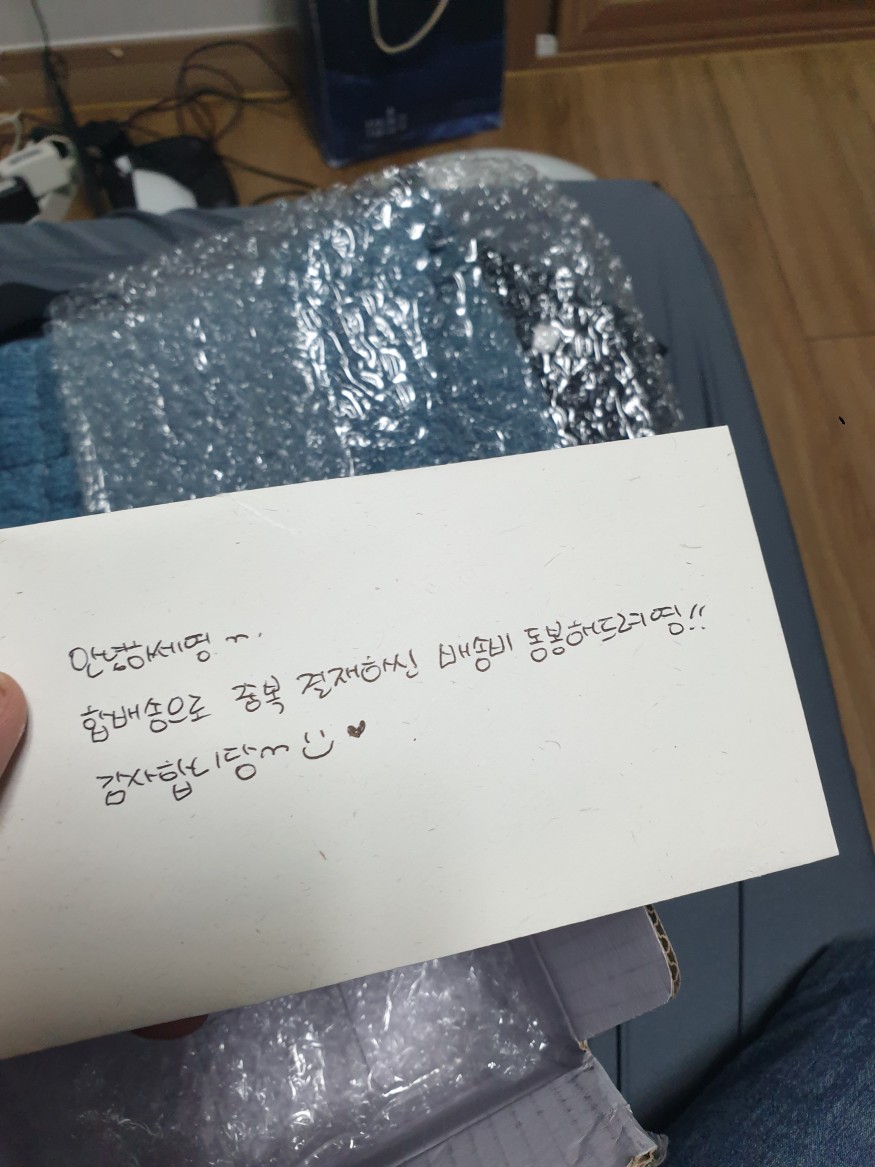 안녕하세영~..
합배송으로 중복 결재하신 배송비 동봉해드려영!!
감사합니당~ :) ♥